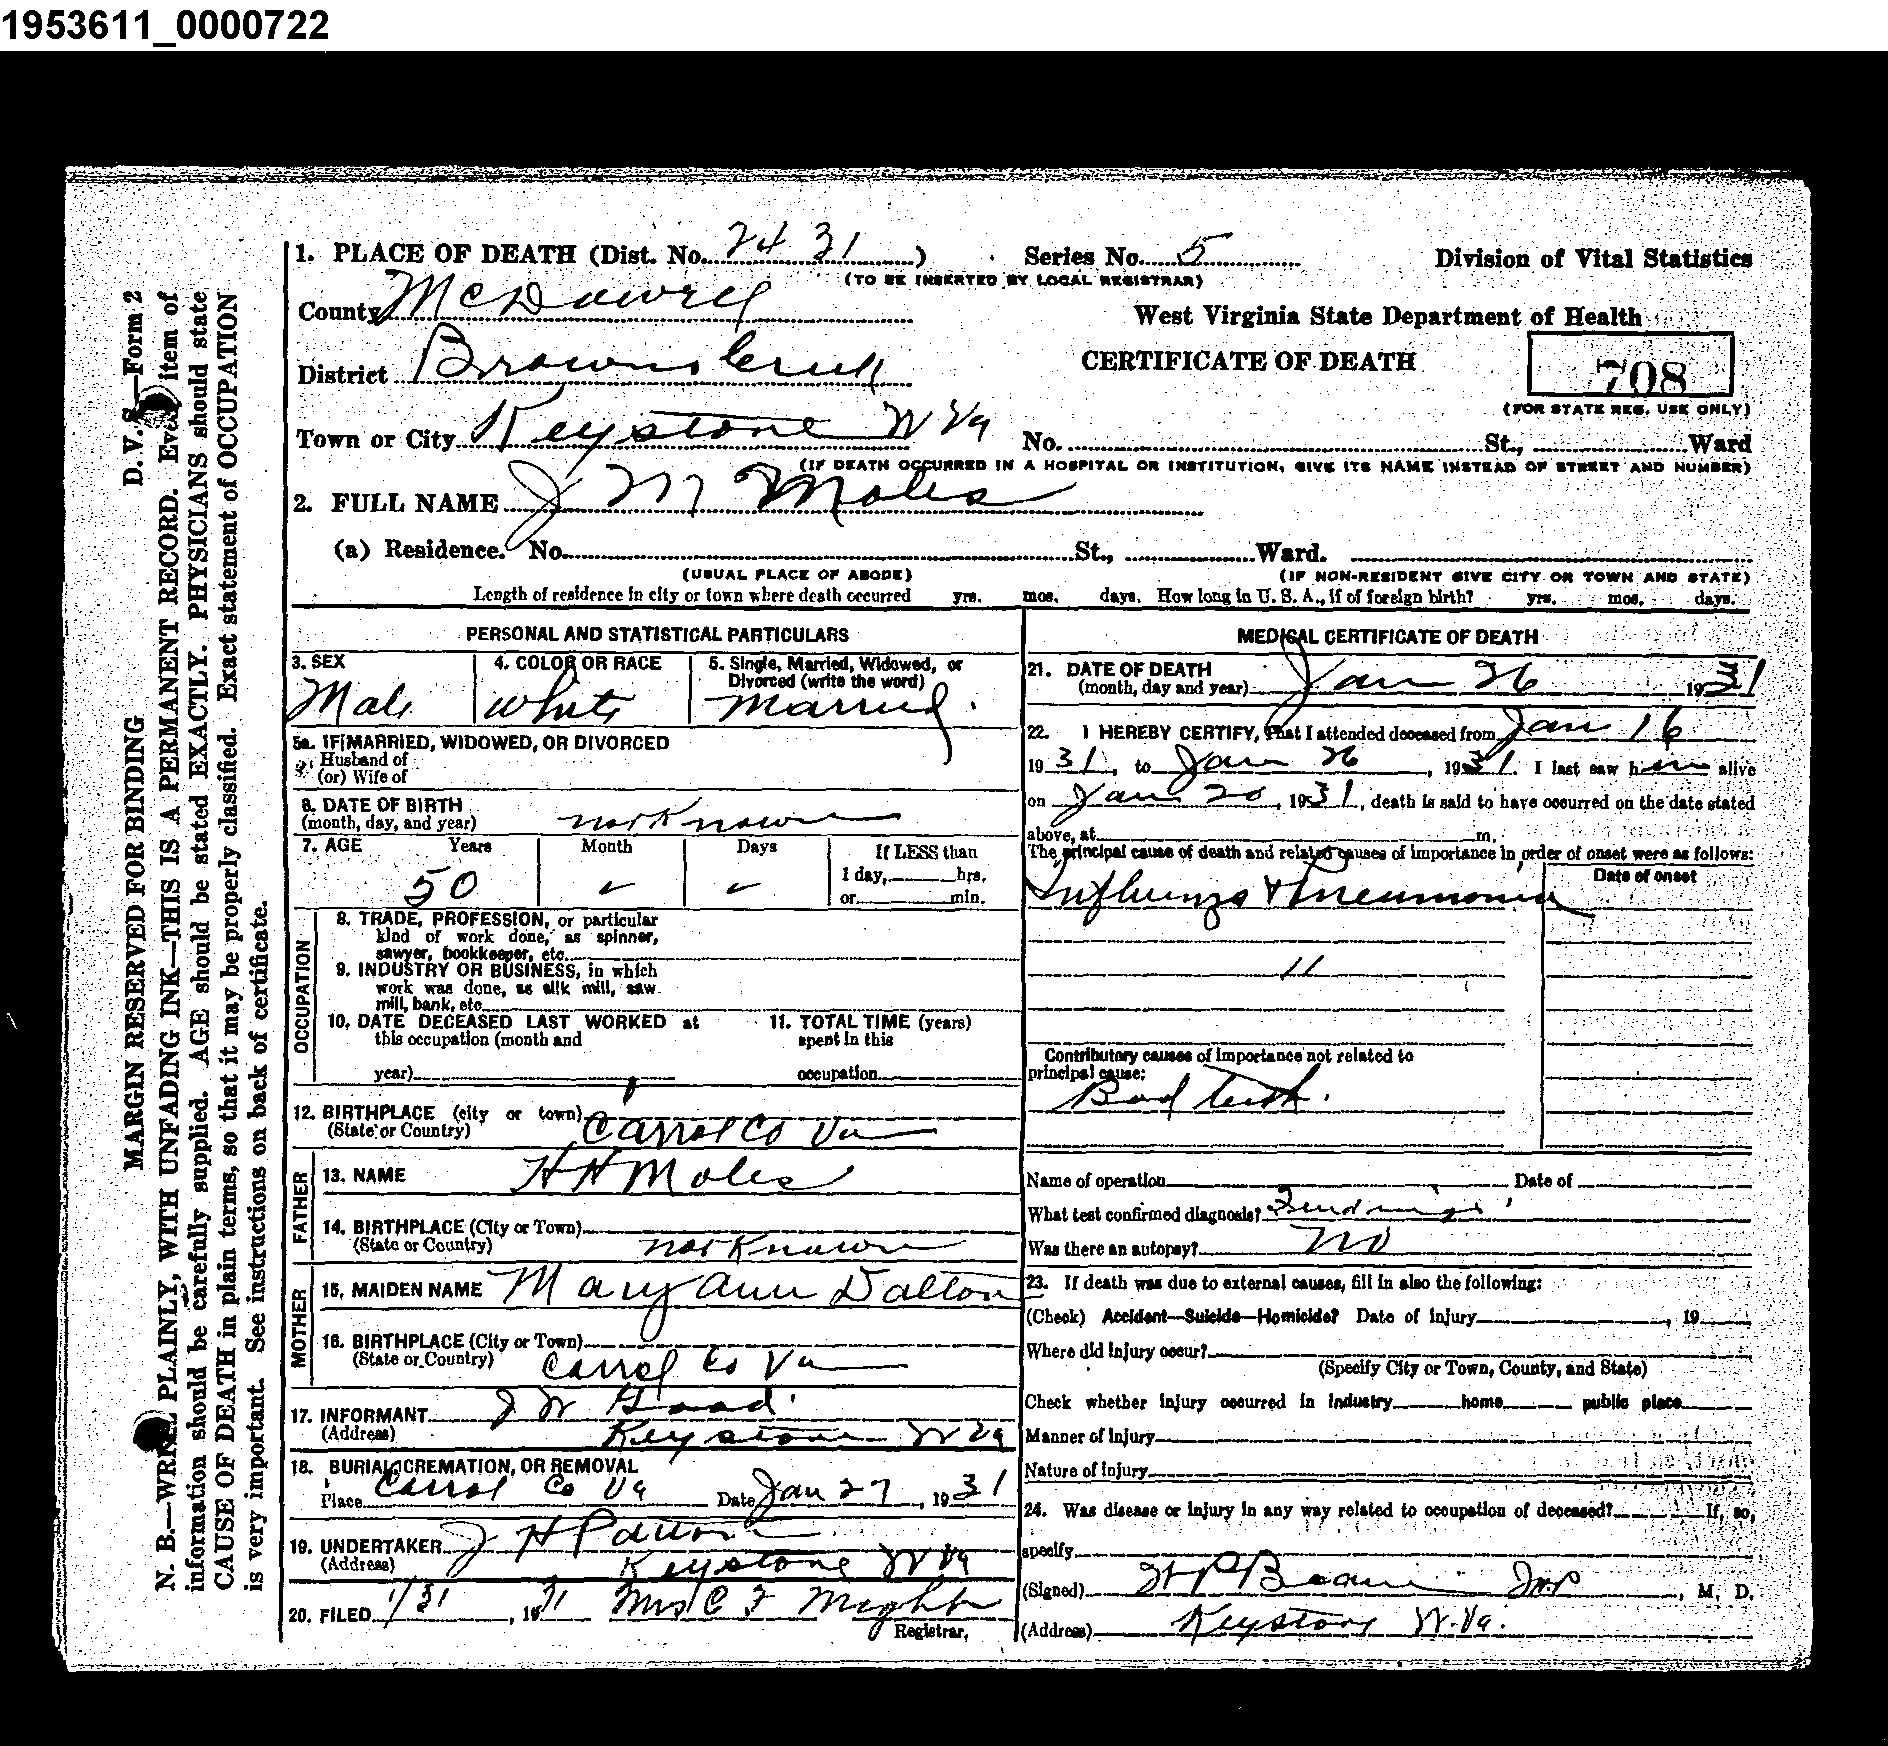 1953611_0000722
1. PLACE OF DEATH (Dist. No. 2431)
Series No. 5
Division of Vital Statistics
(TO BE INSERTED BY LOCAL REGISTRAR)
County McDowell
West Virginia State Department of Health
District Browns Creek
CERTIFICATE OF DEATH
708
(FOR STATE REG. USE ONLY)
Town or City Keystone W Va
No. St., Ward
(IF DEATH OCCURRED IN A HOSPITAL OR INSTITUTION, GIVE ITS NAME INSTEAD OF STREET AND NUMBER)
2. FULL NAME J M Moles
(a) Residence. No. St., Ward.
(USUAL PLACE OF ABODE) (IF NON-RESIDENT GIVE CITY OR TOWN AND STATE)
Length of residence in city or town where death occurred yrs. mos. days. How long in U. S. A., if of foreign birth? yrs. mos. days.
PERSONAL AND STATISTICAL PARTICULARS
3. SEX 4. COLOR OR RACE 5. Single, Married, Widowed, or
Divorced (write the word)
Male White Married
5a. IF MARRIED, WIDOWED, OR DIVORCED
Husband of
(or) Wife of
6. DATE OF BIRTH
(month, day, and year) not Known
7. AGE Years Month Days If LESS than
1 day, hrs.
50 ✓ ✓ or min.
OCCUPATION
8. TRADE, PROFESSION, or particular
kind of work done, as spinner,
sawyer, bookkeeper, etc.
9. INDUSTRY OR BUSINESS, in which
work was done, as silk mill, saw
mill, bank, etc.
10. DATE DECEASED LAST WORKED at 11. TOTAL TIME (years)
this occupation (month and spent in this
year) occupation
12. BIRTHPLACE (city or town)
(State or Country) Carrol Co Va
FATHER
13. NAME H H Moles
14. BIRTHPLACE (City or Town)
(State or Country) not Known
MOTHER
15. MAIDEN NAME Mary Ann Dalton
16. BIRTHPLACE (City or Town)
(State or Country) Carrol Co Va
17. INFORMANT J W
(Address) Keystone W Va
18. BURIAL, CREMATION, OR REMOVAL
Place Carrol Co Va Date Jan 27, 1931
19. UNDERTAKER J H Patton
(Address) Keystone W Va
20. FILED 1/31, 1931 Mrs C F
Registrar.
MEDICAL CERTIFICATE OF DEATH
21. DATE OF DEATH
(month, day and year) Jan 26 1931
22. I HEREBY CERTIFY, That I attended deceased from Jan 16
1931, to Jan 26, 1931. I last saw him alive
on Jan 20, 1931, death is said to have occurred on the date stated
above, at m.
The principal cause of death and related causes of importance in order of onset were as follows:
Date of onset
Influenza & Pneumonia
11
Contributory causes of importance not related to
principal cause:
Bad teeth.
Name of operation Date of
What test confirmed diagnosis? Findings
Was there an autopsy? No
23. If death was due to external causes, fill in also the following:
(Check) Accident—Suicide—Homicide? Date of injury, 19
Where did injury occur?
(Specify City or Town, County, and State)
Check whether injury occurred in industry home public place
Manner of injury
Nature of injury
24. Was disease or injury in any way related to occupation of deceased? If, so,
specify
(Signed) , M. D.
(Address) Keystone W. Va.
D. V. S.—Form 2
MARGIN RESERVED FOR BINDING
N. B.—WRITE PLAINLY, WITH UNFADING INK—THIS IS A PERMANENT RECORD. Every item of
information should be carefully supplied. AGE should be stated EXACTLY. PHYSICIANS should state
CAUSE OF DEATH in plain terms, so that it may be properly classified. Exact statement of OCCUPATION
is very important. See instructions on back of certificate.